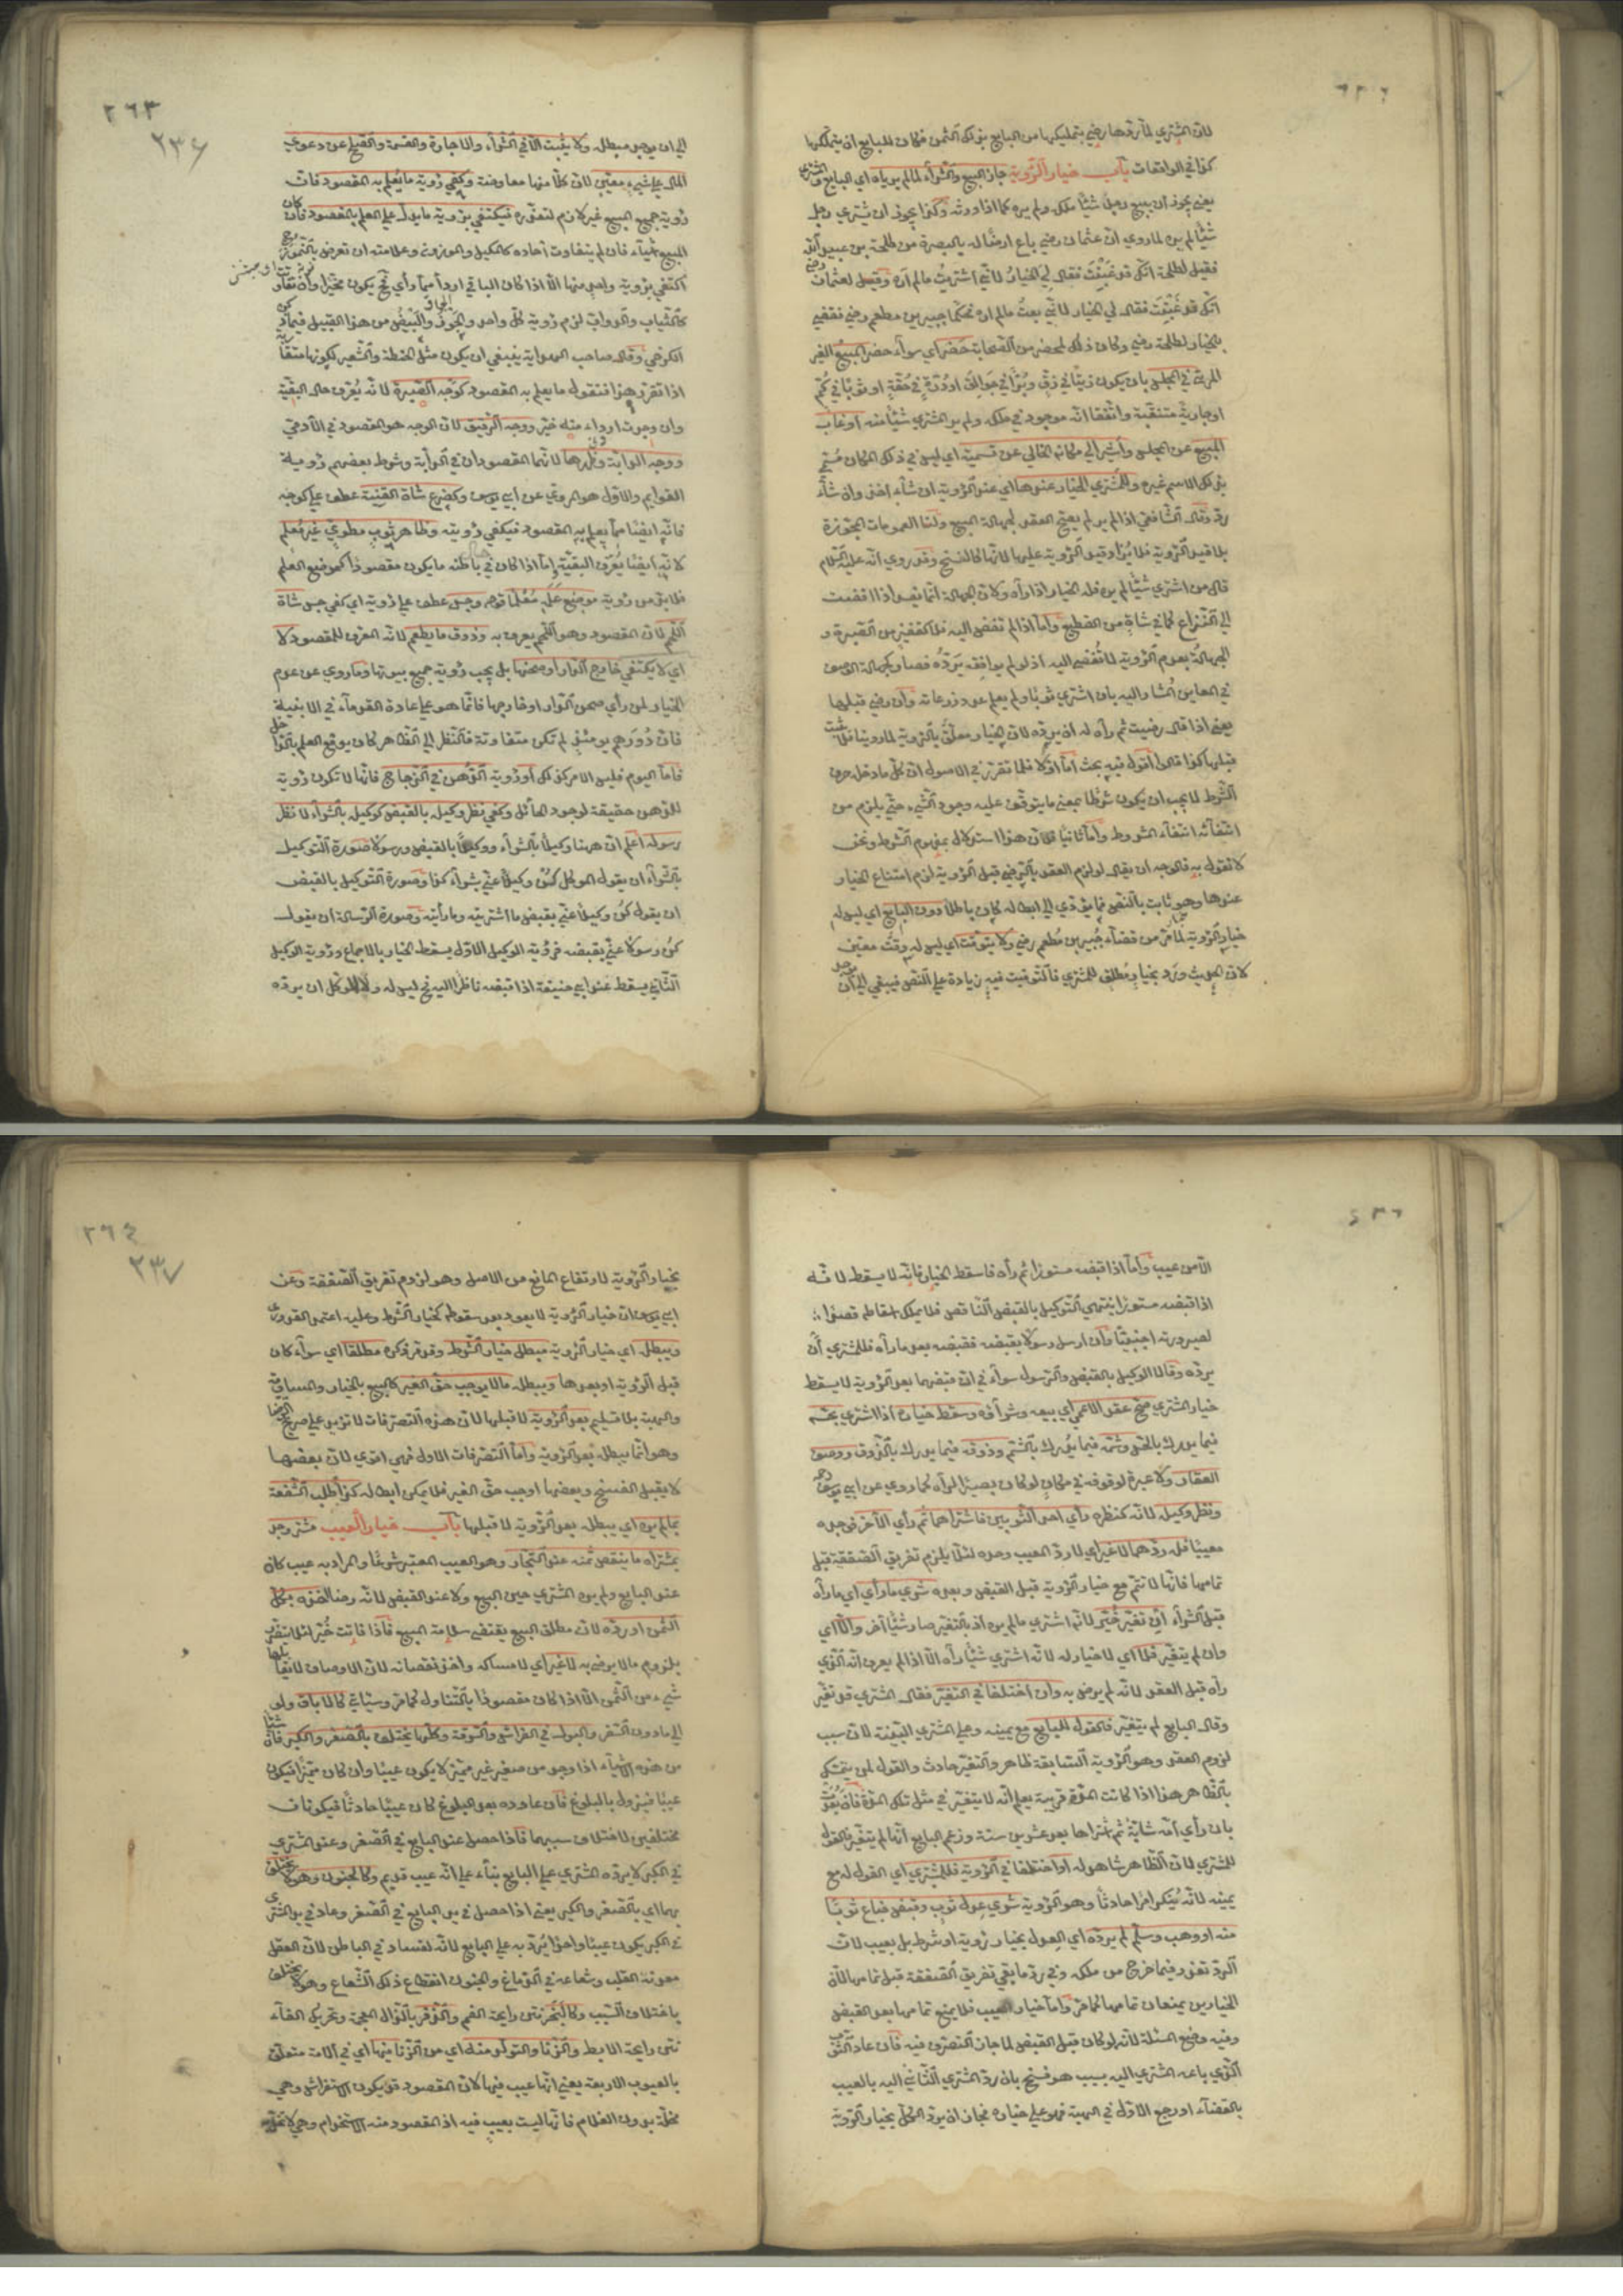 لان المشتري لما ردها رضي بتمليكها من البايع بذلك الثمن فكان للبايع ان يتملكها
كذا في الواقعات باب خيار الرؤية جاز البيع والشراء لما لم يرياه اي البايع والمشتري
يعني يجوز ان يبيع رجل شيئا ملكه ولم يره كما اذا ورثه وكذا يجوز ان يشتري رجل
شيئا لم يره لما روي ان عثمان رضي باع ارضا له بالبصرة من طلحة بن عبيد الله
فقيل لطلحة انك قد غبنت فقال لي الخيار لاني اشتريت ما لم اره وقيل لعثمان رضي
انك قد غبنت فقال لي الخيار لاني بعت ما لم اره فحكما جبير بن مطعم رضي فقضي
بالخيار لطلحة رضي وكان ذلك بمحضر من الصحابة حضر اي سواء حضر المبيع الغير
المرئي في المجلس بان يكون زيتا في زق وبرا في جوالق او درة في حقة او ثوبا في كم
او جارية متنقبة واتفقا انه موجود في ملكه ولم ير المشتري شيئا منه او غاب
المبيع عن المجلس واشير الي مكانه الخالي عن تسميته اي ليس في ذلك المكان مسمي
بذلك الاسم غيره وللمشتري الخيار عندها اي عند الرؤية ان شاء اخذ وان شاء
رد وقال الشافعي اذا لم ير لم يصح العقد لجهالة المبيع ولنا العمومات المجوزة
بلا قيد الرؤية فلا يزاد قيد الرؤية عليها لانها كالنسخ وقد روي انه عليه السلام
قال من اشتري شيئا لم يره فله الخيار اذا رآه ولان الجهالة انما تفسد اذا افضت
الي النزاع كما في شاة من القطيع واما اذا لم تفض اليه فلا كقفيز من الصبرة و
الجهالة بعدم الرؤية لا تفضي اليه اذ لو لم يوافقه يرده فصار كجهالة الوصف
في المعاين المشار اليه بان اشتري ثوبا ولم يعلم عدد ذرعانه وان رضي قبلها
يعني اذا قال رضيت ثم رآه له ان يرده لان الخيار معلق بالرؤية لما روينا فلا يثبت
قبلها كذا قالوا اقول فيه بحث اما اولا فلما تقرر في الاصول ان كل ما دخله حرف
الشرط لا يجب ان يكون شرطا بمعني ما يتوقف عليه وجود الشيء حتي يلزم من
انتفائه انتفاء المشروط واما ثانيا فلان هذا استدلال بمفهوم الشرط ونحن
لا نقول به فالوجه ان يقال لو لزم العقد بالرضي قبل الرؤية لزم امتناع الخيار
عندها وهو ثابت بالنص فما يؤدي الي ابطاله كان باطلا دون البايع اي ليس له
خيار الرؤية لما مر من قضاء جبير بن مطعم رضي ولا يتوقت اي ليس له وقت معين
لان الحديث ورد بخيار مطلق للمشتري فالتوقيت فيه زيادة علي النص فيبقي الي ان
٢٦٣
٢٣٦
الي ان يوجد مبطله ولا يثبت الا في الشراء والاجارة والقسمة والصلح عن دعوي
المال علي شيء معين لان كلا منها معاوضة وكفي رؤية ما يعلم به المقصود فان
رؤية جميع المبيع غير لازم لتعذره فيكتفي برؤية ما يدل علي العلم بالمقصود فان كان
المبيع اشياء فان لم يتفاوت آحاده كالمكيل والموزون وعلامته ان تعرض بالنموذج
اكتفي برؤية واحد منها الا اذا كان الباقي اردأ مما رأي فح يكون مخيرا وان تفاوت
كالثياب والدواب لزم رؤية كل واحد والجوز والبيض من هذا القبيل فيما ذكره
الكرخي وقال صاحب الهداية ينبغي ان يكون مثل الحنطة والشعير لكونها متقاربة
اذا تقرر هذا فنقول ما يعلم به المقصود كوجه الصبرة لانه يعرف حال البقية
وان وجدت اردأ منه خير ووجه الرقيق لان الوجه هو المقصود في الآدمي
ووجه الدابة وكفلها لانهما المقصودان في الدابة وشرط بعضهم رؤية
القوايم والاول هو المروي عن ابي يوسف وكضرع شاة القنية عطف علي كوجه
فانه ايضا مما يعلم به المقصود فيكفي رؤيته وظاهر ثوب مطوي غير معلم
لانه ايضا يعرف البقية اما اذا كان في باطنه ما يكون مقصودا كموضع العلم
فلا بد من رؤية موضع علمه معلما قوله وجس عطف علي رؤية اي كفي جس شاة
اللحم لان المقصود وهو اللحم يعرف به وذوق ما يطعم لانه المعرف للمقصود لا
اي لا يكتفي خارج الدار او صحنها بل يجب رؤية جميع بيوتها وما روي عن عدم
الخيار لمن رأي صحن الدار او خارجها فانما هو علي عادة القدماء في الابنية
فان دورهم يومئذ لم تكن متفاوتة فالنظر الي الظاهر كان يوقع العلم بالداخل
فاما اليوم فليس الامر كذلك او رؤية الدهن في الزجاج فانها لا تكون رؤية
للدهن حقيقة لوجود الحائل وكفي نظر وكيله بالقبض كوكيله بالشراء لا نظر
رسوله اعلم ان ههنا وكيلا بالشراء ووكيلا بالقبض ورسولا صورة التوكيل
بالشراء ان يقول الموكل كن وكيلا عني بشراء كذا وصورة التوكيل بالقبض
ان يقول كن وكيلا عني بقبض ما اشتريته وما رأيته وصورة الرسالة ان يقول
كن رسولا عني بقبضه فرؤية الوكيل الاول يسقط الخيار بالاجماع ورؤية الوكيل
الثاني يسقط عند ابي حنيفة اذا قبضه ناظرا اليه فح ليس له ولا للموكل ان يرده
الا من عيب واما اذا قبضه مستورا ثم رآه فاسقط الخيار فانه لا يسقط لانه
اذا قبضه مستورا ينتهي التوكيل بالقبض الناقص فلا يملك اسقاطه قصدا
لصيرورته اجنبيا وان ارسل رسولا بقبضه فقبضه بعد ما رآه فللمشتري ان
يرده وقالا الوكيل بالقبض والرسول سواء في ان قبضهما بعد الرؤية لا يسقط
خيار المشتري صح عقد الاعمي اي بيعه وشراؤه وسقط خياره اذا اشتري بجسه
فيما يدرك بالجس وشمه فيما يدرك بالشم وذوقه فيما يدرك بالذوق ووصف
العقار ولا عبرة لوقوفه في مكان لو كان بصيرا لرآه كما روي عن ابي يوسف رحمه
ونظر وكيله لانه كنظره رأي احد الثوبين فاشتراهما ثم رأي الآخر فوجده
معيبا فله ردهما لا غير اي لا رد المعيب وحده لئلا يلزم تفريق الصفقة قبل
تمامها فانها لا تتم مع خيار الرؤية قبل القبض وبعده شري ما رأي اي ما رآه
قبل الشراء ان تغير خير لانه اشتري ما لم يره اذ بالتغير صار شيئا آخر والا اي
وان لم يتغير فلا اي لا خيار له لانه اشتري شيئا رآه الا اذا لم يعرف انه الذي
رآه قبل العقد لانه لم يرض به وان اختلفا في التغير فقال المشتري قد تغير
وقال البايع لم يتغير فالقول للبايع مع يمينه وعلي المشتري البينة لان سبب
لزوم العقد وهو الرؤية السابقة ظاهر والتغير حادث والقول لمن يتمسك
بالظاهر هذا اذا كانت المدة قريبة يعلم انه لا يتغير في مثل تلك المدة فان بعدت
بان رأي امة شابة ثم اشتراها بعد عشرين سنة وزعم البايع انها لم يتغير فالقول
للمشتري لان الظاهر شاهد له او اختلفا في الرؤية فللمشتري اي القول له مع
يمينه لانه ينكر امرا حادثا وهو الرؤية شري عدل ثوب وقبض فباع ثوبا
منه او وهب وسلم لم يرده اي العدل بخيار رؤية او شرط بل بعيب لان
الرد تعذر فيما خرج عن ملكه وفي رد ما بقي تفريق الصفقة قبل تمامها لان
الخيارين يمنعان تمامها كما مر واما خيار العيب فلا يمنع تمامها بعد القبض
وفيه وضع المسئلة لانه لو كان قبل القبض لما جاز التصرف فيه فان عاد الثوب
الذي باعه المشتري اليه بسبب هو فسخ بان رد المشتري الثاني اليه بالعيب
بالقضاء او رجع الاول في الهبة فهو علي خياره فجاز ان يرد الكل بخيار الرؤية
٢٦٤
٢٣٧
بخيار الرؤية لارتفاع المانع من الاصل وهو لزوم تفريق الصفقة وعن
ابي يوسف ان خيار الرؤية لا يعود بعد سقوطه كخيار الشرط وعليه اعتمد القدوري
ويبطله اي خيار الرؤية مبطل خيار الشرط وقد مر ذكره مطلقا اي سواء كان
قبل الرؤية او بعدها ويبطله ما لا يوجب حق الغير كالبيع بالخيار والمساومة
والهبة بلا تسليم بعد الرؤية لا قبلها لان هذه التصرفات لا تزيد علي صريح الرضا
وهو انما يبطله بعد الرؤية واما التصرفات الاول فهي اقوي لان بعضها
لا يقبل الفسخ وبعضها اوجب حق الغير فلا يمكن ابطاله كذا طلب الشفعة
بما لم يره اي يبطله بعد الرؤية لا قبلها باب خيار العيب مشتر وجد
بمشتراه ما ينقص ثمنه عند التجار وهو العيب المعتبر شرعا والمراد به عيب كان
عند البايع ولم يره المشتري حين البيع ولا عند القبض لانه رضا اخذه بكل
الثمن او رده لان مطلق البيع يقتضي سلامة المبيع فاذا فاتت خير لئلا يتضرر
بلزوم ما لا يرضي به لا غير اي لا امساكه واخذ نقصانه لان الاوصاف لا يقابلها
شيء من الثمن الا اذا كان مقصودا بالتناول كما مر وسيأتي كالاباق ولو
الي ما دون السفر والبول في الفراش والسرقة وكلها يختلف بالصغر والكبر فان شيئا
من هذه الاشياء اذا وجد من صغير غير مميز لا يكون عيبا وان كان مميزا فيكون
عيبا فيزول بالبلوغ فان عاوده بعد البلوغ كان عيبا حادثا فيكونان
مختلفين لاختلاف سببهما فاذا حصل عند البايع في الصغر وعند المشتري
في الكبر لا يرده المشتري علي البايع بناء علي انه عيب قديم وكالجنون وهو لا يختلف
بهما اي بالصغر والكبر يعني اذا حصل في يد البايع في الصغر وعاد في يد المشتري
في الكبر يكون عيبا واحدا يرد به علي البايع لانه لفساد في الباطن لان العقل
معدنه القلب وشعاعه في الدماغ والجنون انقطاع ذلك الشعاع وهو لا يختلف
باختلاف السبب وكالبخر نتن رايحة الفم والذفر بالذال المعجمة وتحريك الفاء
نتن رايحة الابط والزنا والتولد منه اي من الزنا فيها اي في الامة متعلق
بالعيوب الاربعة يعني انها عيب فيها لان المقصود قد يكون الاستفراش وهي
مخلة به دون الغلام فانها ليست بعيب فيه اذ المقصود منه الاستخدام وهي لا تخل به